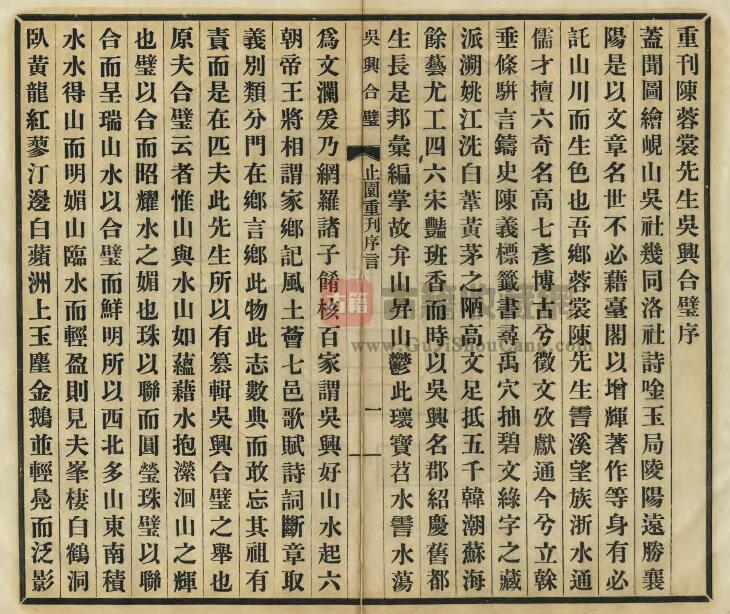 重刊陳蓉裳先生吳興合璧序
蓋聞圖繪峴山吳社幾同洛社詩唫玉局陵陽遠勝襄
陽是以文章名世不必藉臺閣以增輝著作等身有必
託山川而生色也吾鄉蓉裳陳先生霅溪望族浙水通
儒才擅六奇名高七彥博古兮徵文攷獻通今兮立榦
垂條駢言鑄史陳義標籤書尋禹穴抽碧文綠字之藏
派溯姚江洗白葦黃茅之陋高文足抵五千韓潮蘇海
餘藝尤工四六宋豔班香而時以吳興名郡紹慶舊都
生長是邦彙編掌故弁山昇山鬱此瓌寶苕水霅水蕩
吳興合璧
止園重刊序言
一
爲文瀾爰乃網羅諸子餚核百家謂吳興好山水起六
朝帝王將相謂家鄉記風土薈七邑歌賦詩詞斷章取
義別類分門在鄉言鄉此物此志數典而敢忘其祖有
責而是在匹夫此先生所以有纂輯吳興合璧之舉也
原夫合璧云者惟山與水山如蘊藉水抱瀠洄山之輝
也璧以合而昭耀水之媚也珠以聯而圓瑩珠璧以聯
合而呈瑞山水以合璧而鮮明所以西北多山東南積
水水得山而明媚山臨水而輕盈則見夫峯棲白鶴洞
臥黃龍紅蓼汀邊白蘋洲上玉塵金鵝並輕鳧而泛影
古籍
www.GuJiShouCang.com